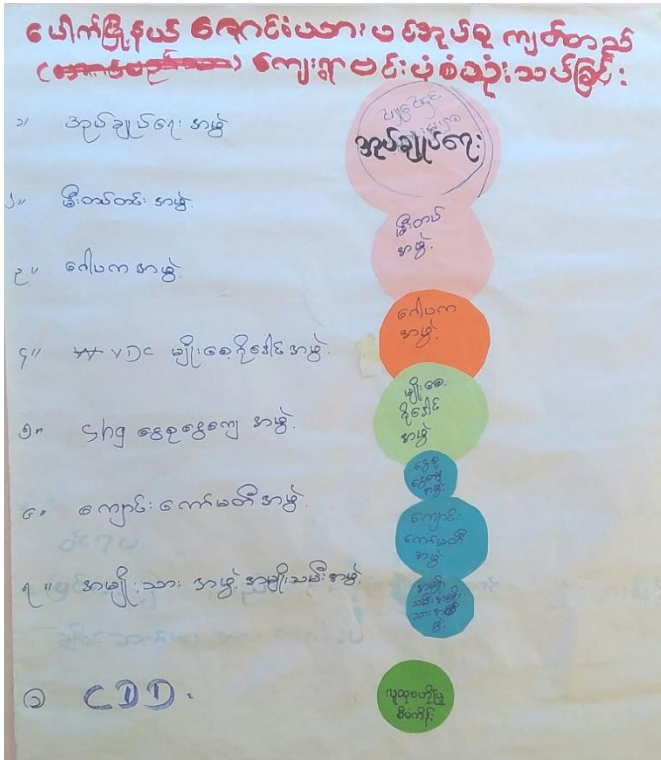 ပေါက်မြို့နယ် ချောင်းယား ဖင်အုပ်စု ကျတ်တည်
ကျေးရွာ ဗင်းပုံစံသုံးသပ်ခြင်း
၁။ အုပ်ချုပ်ရေး အဖွဲ့
၂။ မီးတပ်တင်း အဖွဲ့
၃။ ဂေါပက အဖွဲ့
၄။ VDC မျိုးစေ့ဂိုဒေါင် အဖွဲ့
၅။ Shg ငွေစုငွေချေး အဖွဲ့
၆။ ကျောင်းကော်မတီ အဖွဲ့
၇။ အမျိုးသား အဖွဲ့ အမျိုးသမီး အဖွဲ့
၁ CDD
အုပ်ချုပ်ရေး
မီးတပ်
အဖွဲ့
ဂေါပက
အဖွဲ့
မျိုးစေ့
ဂိုဒေါင်
အဖွဲ့
ငွေစု
အဖွဲ့
ကျောင်း
ကော်မတီ
အဖွဲ့
လူထုဗဟိုပြု
စီမံကိန်း